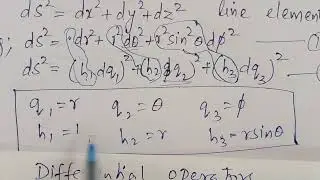 ds² = dx² + dy² + dz² line elemen
ds² = dr² + r²dθ² + r²sin²θdφ² —(
ds² = (h₁dq₁)² + (h₂dq₂)² + (h₃dq₃)²
q₁ = r q₂ = θ q₃ = φ
h₁ = 1 h₂ = r h₃ = rsinθ
Differential operators